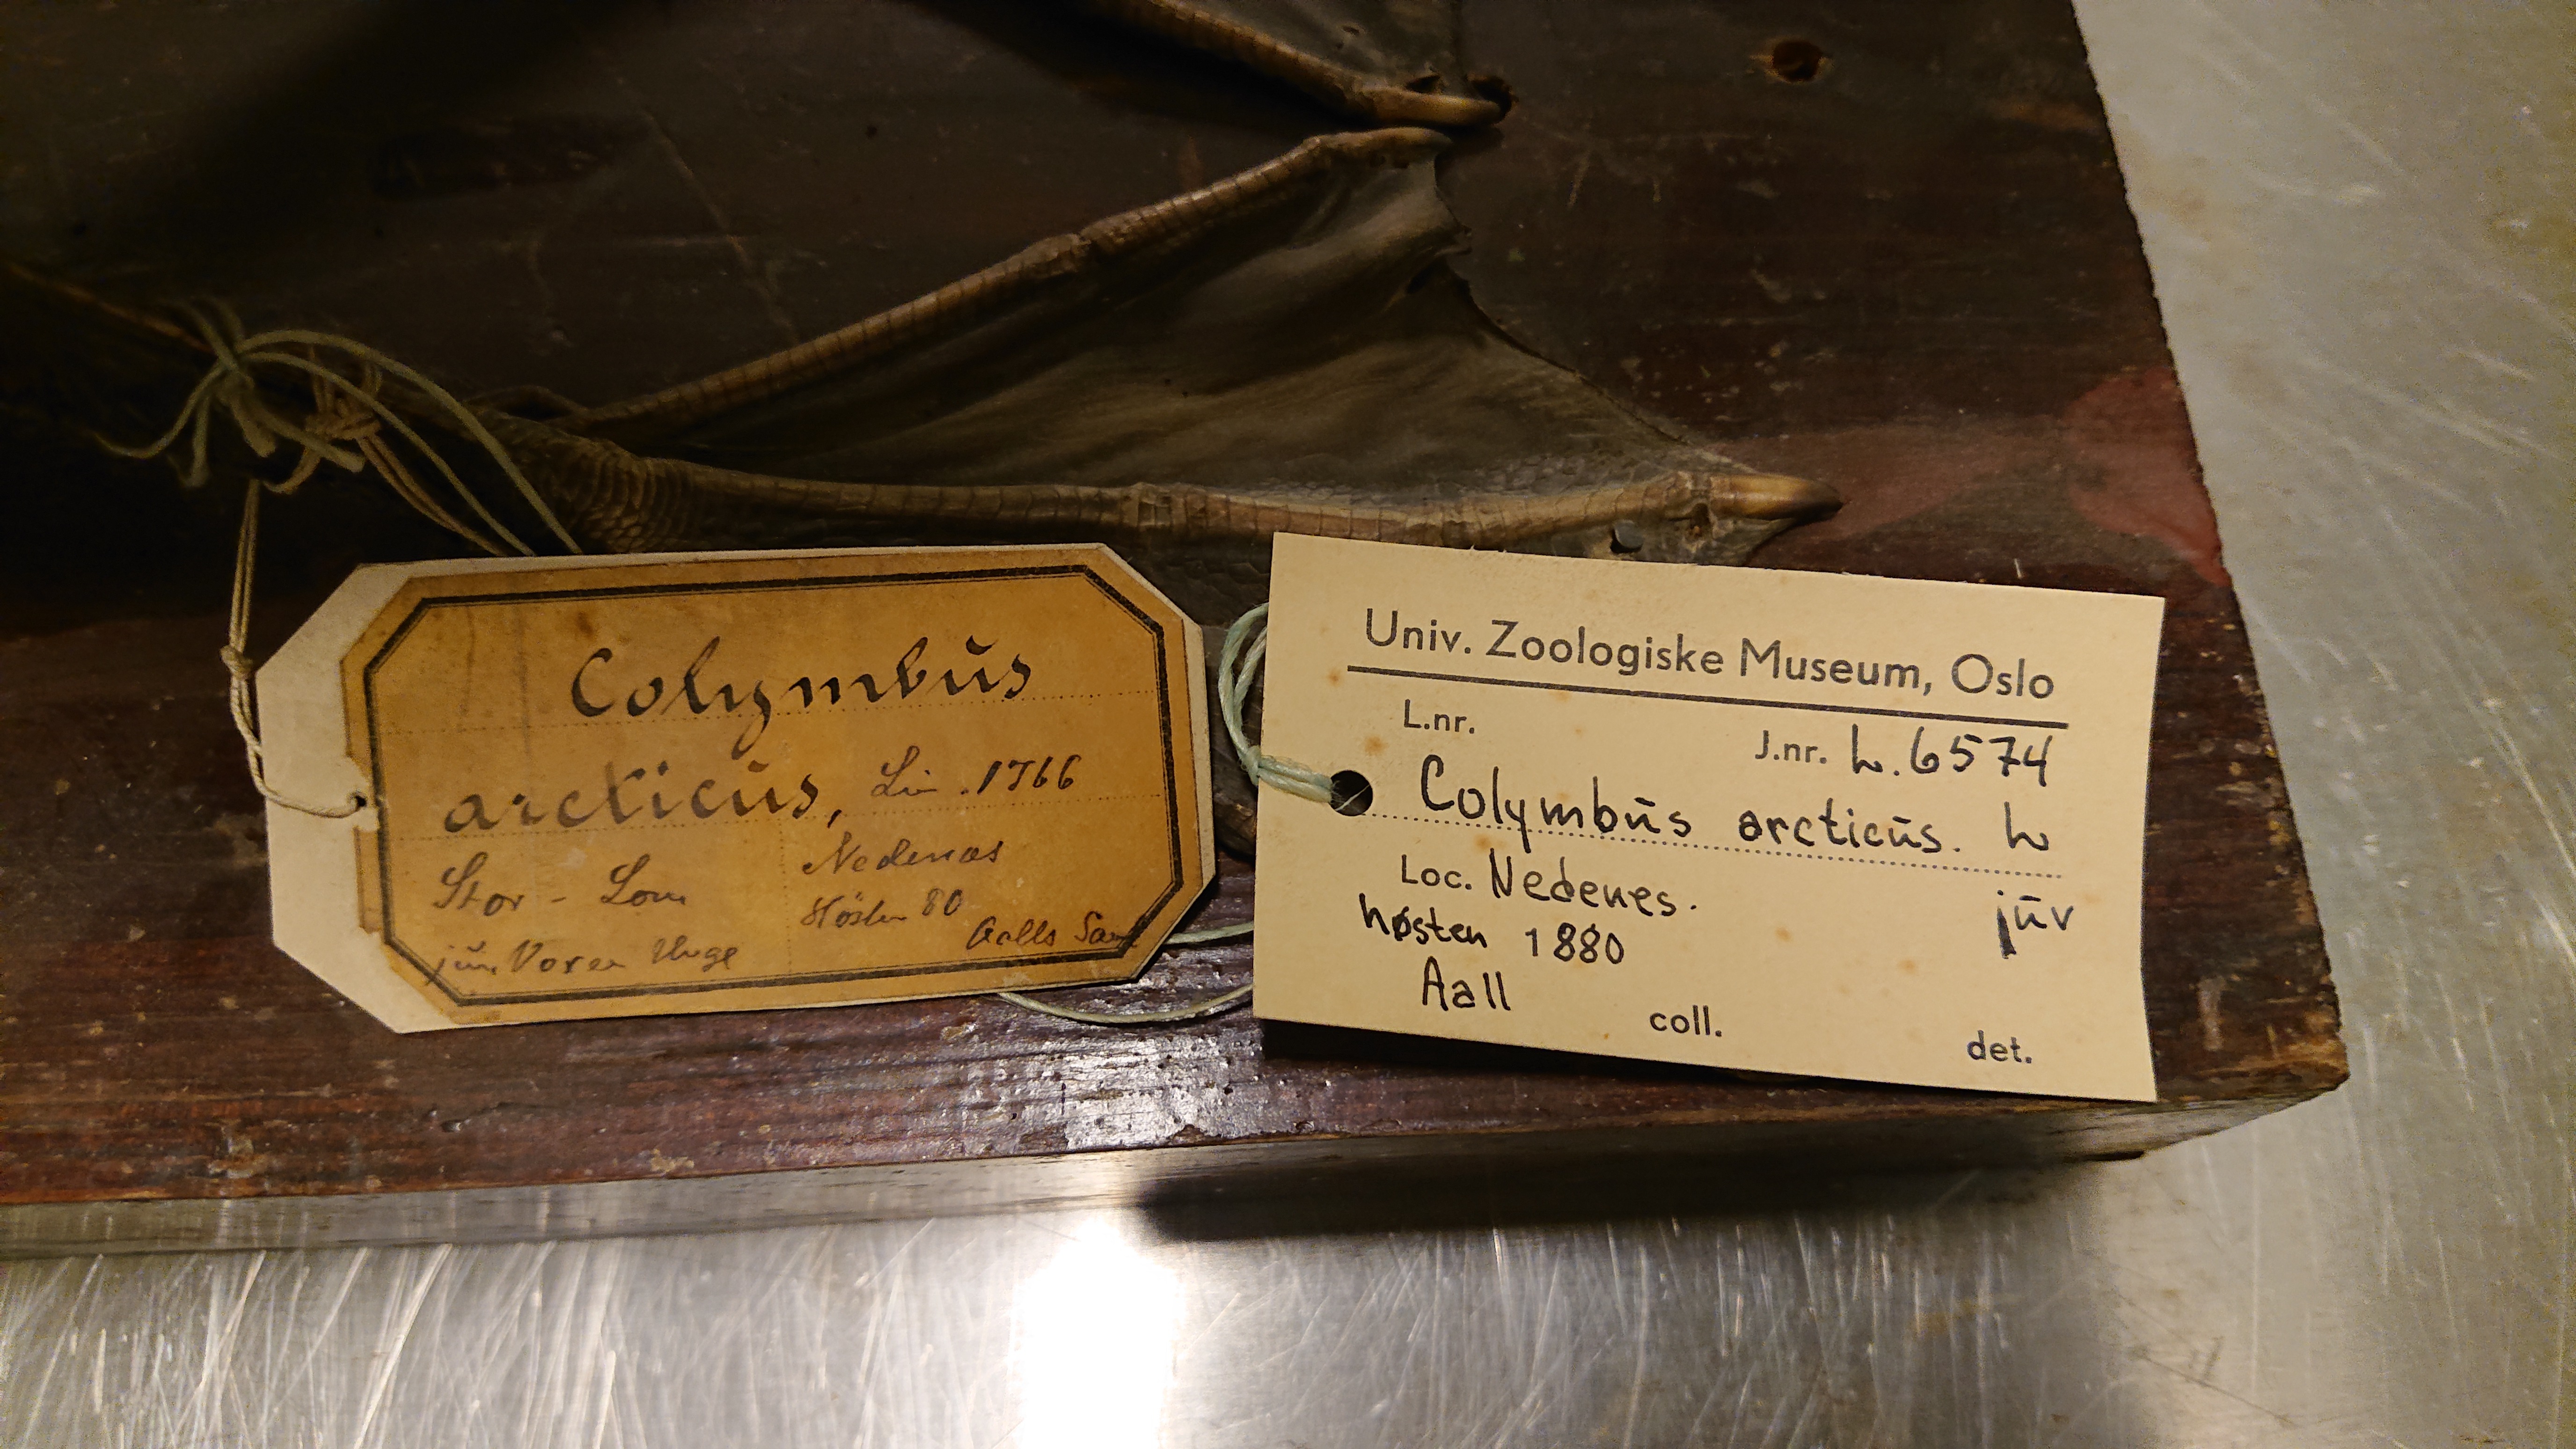 Colymbūs
arcticūs, Lin. 1766
Stor - Lom
Nedenæs
Hösten 80
jūn. Voxen Unge
Aalls Saml
Univ. Zoologiske Museum, Oslo
L.nr.
J.nr. L. 6574
Colymbūs arcticūs. L
Loc. Nedenes.
jūv
høsten 1880
Aall
coll.
det.